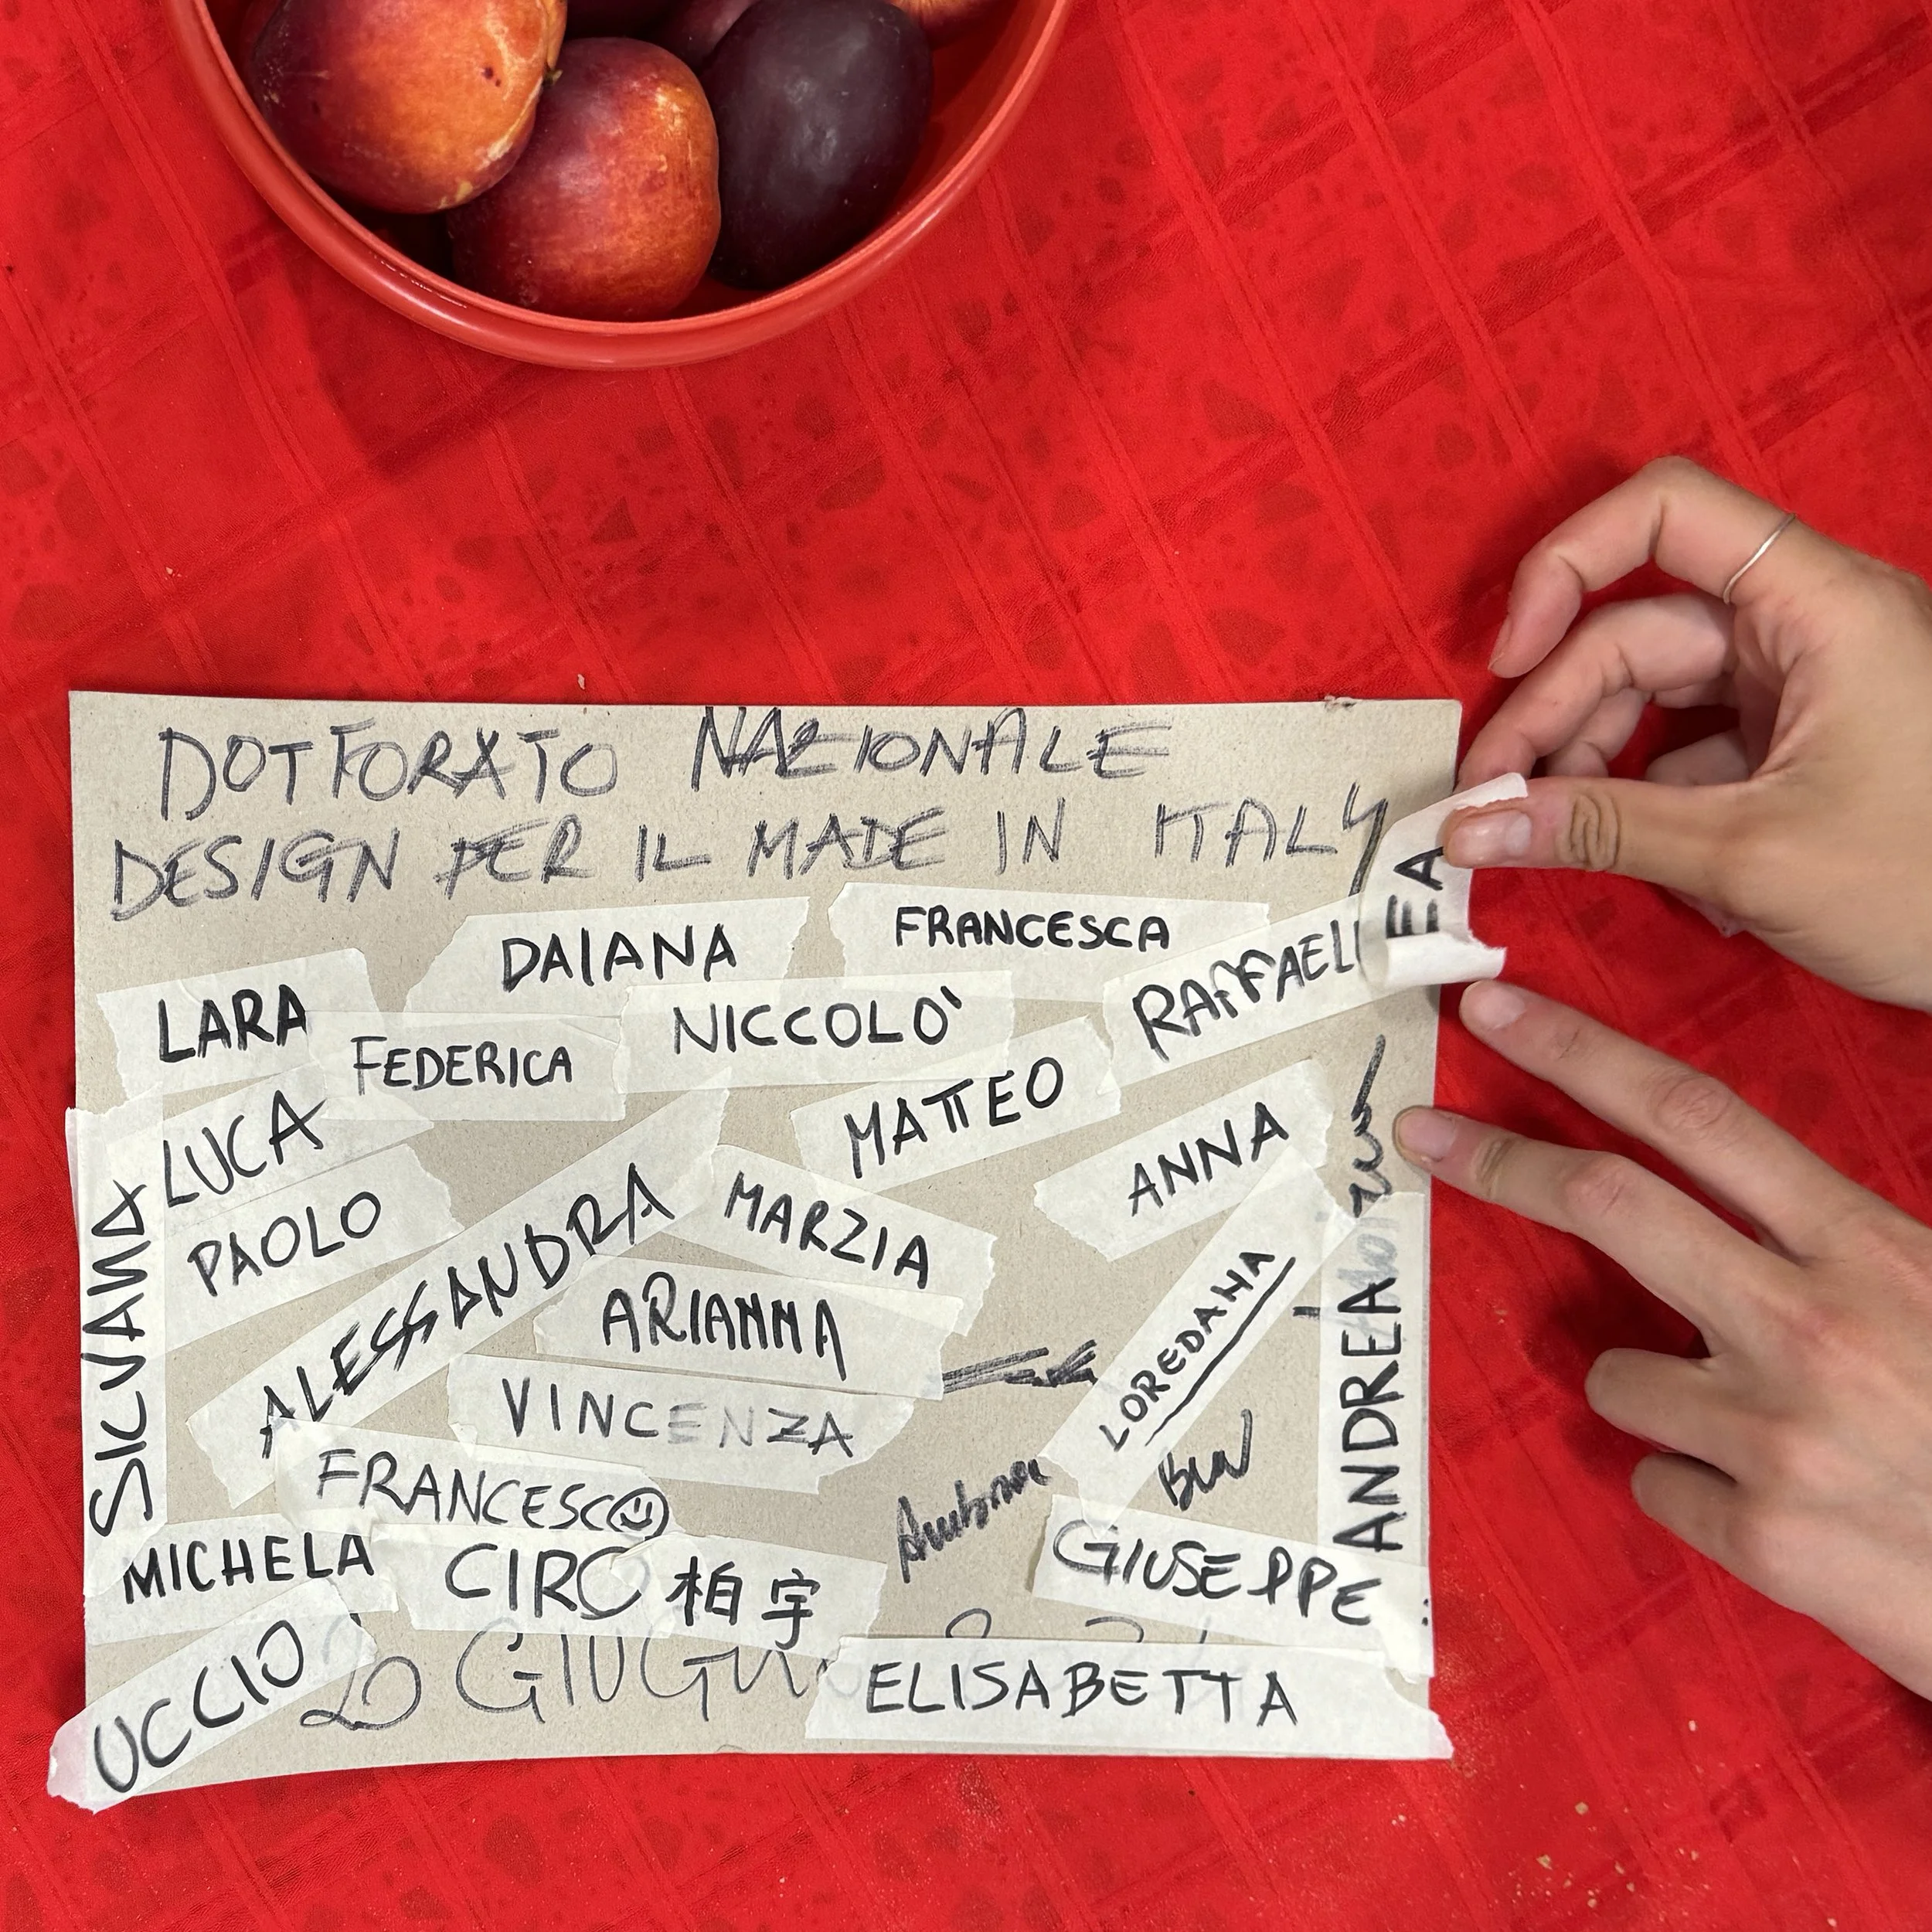 DOTTORATO NAZIONALE
DESIGN PER IL MADE IN ITALY
DAIANA
FRANCESCA
EA
LARA
FEDERICA
NICCOLO'
RAFFAEL
LUCA
MATTEO
ANNA
PAOLO
SILVANA
ALESSANDRA
MARZIA
ARIANNA
LOREDANA
VINCENZA
ANDREA
FRANCESCO
MICHELA
CIRO 柏宇
GIUSEPPE
UCCIO
20 GIUGN
ELISABETTA